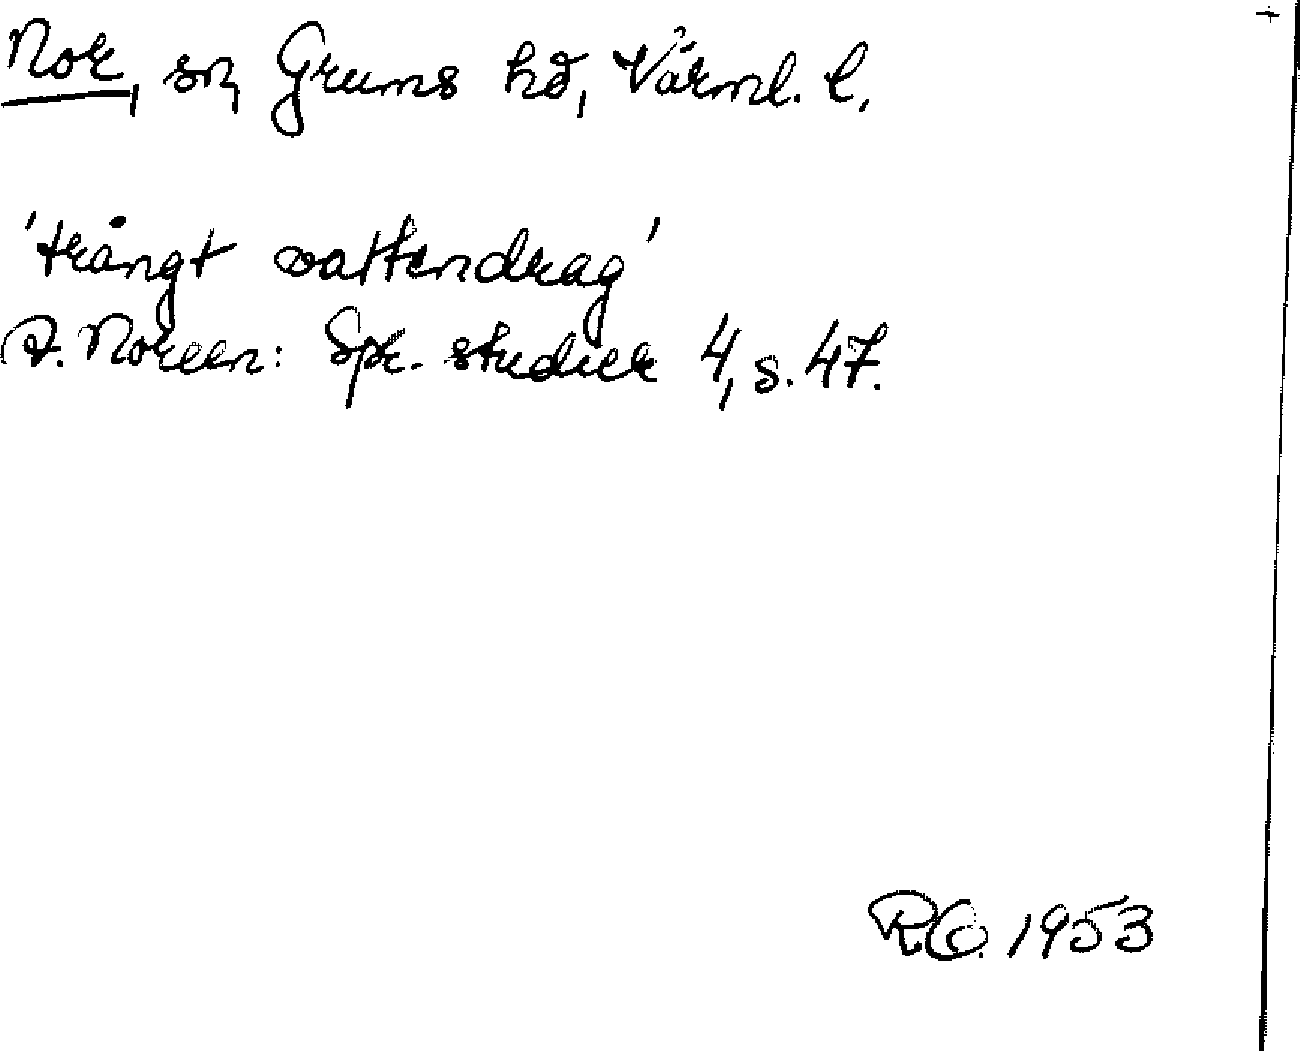 Nor, sn, Grums hd, Värml. l.
'trångt vattendrag'
A. Noreen: Spr. studier 4, s. 47.
1953